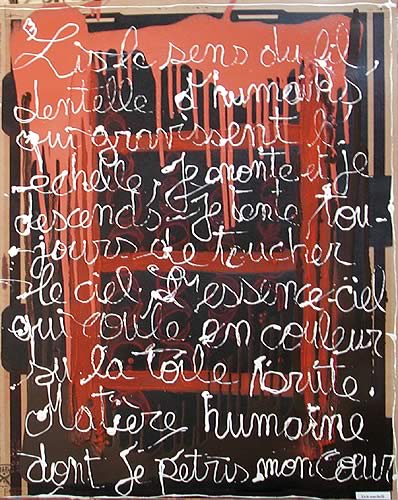 Lis le sens du fil,
dentelle d'humains
qui gravissent l'
echelle, je monte et je
descends. Je tente tou-
jours de toucher
le ciel, l'essence-ciel
qui coule en couleur
su la toile brute.
Matière humaine
dont je petris mon cœur